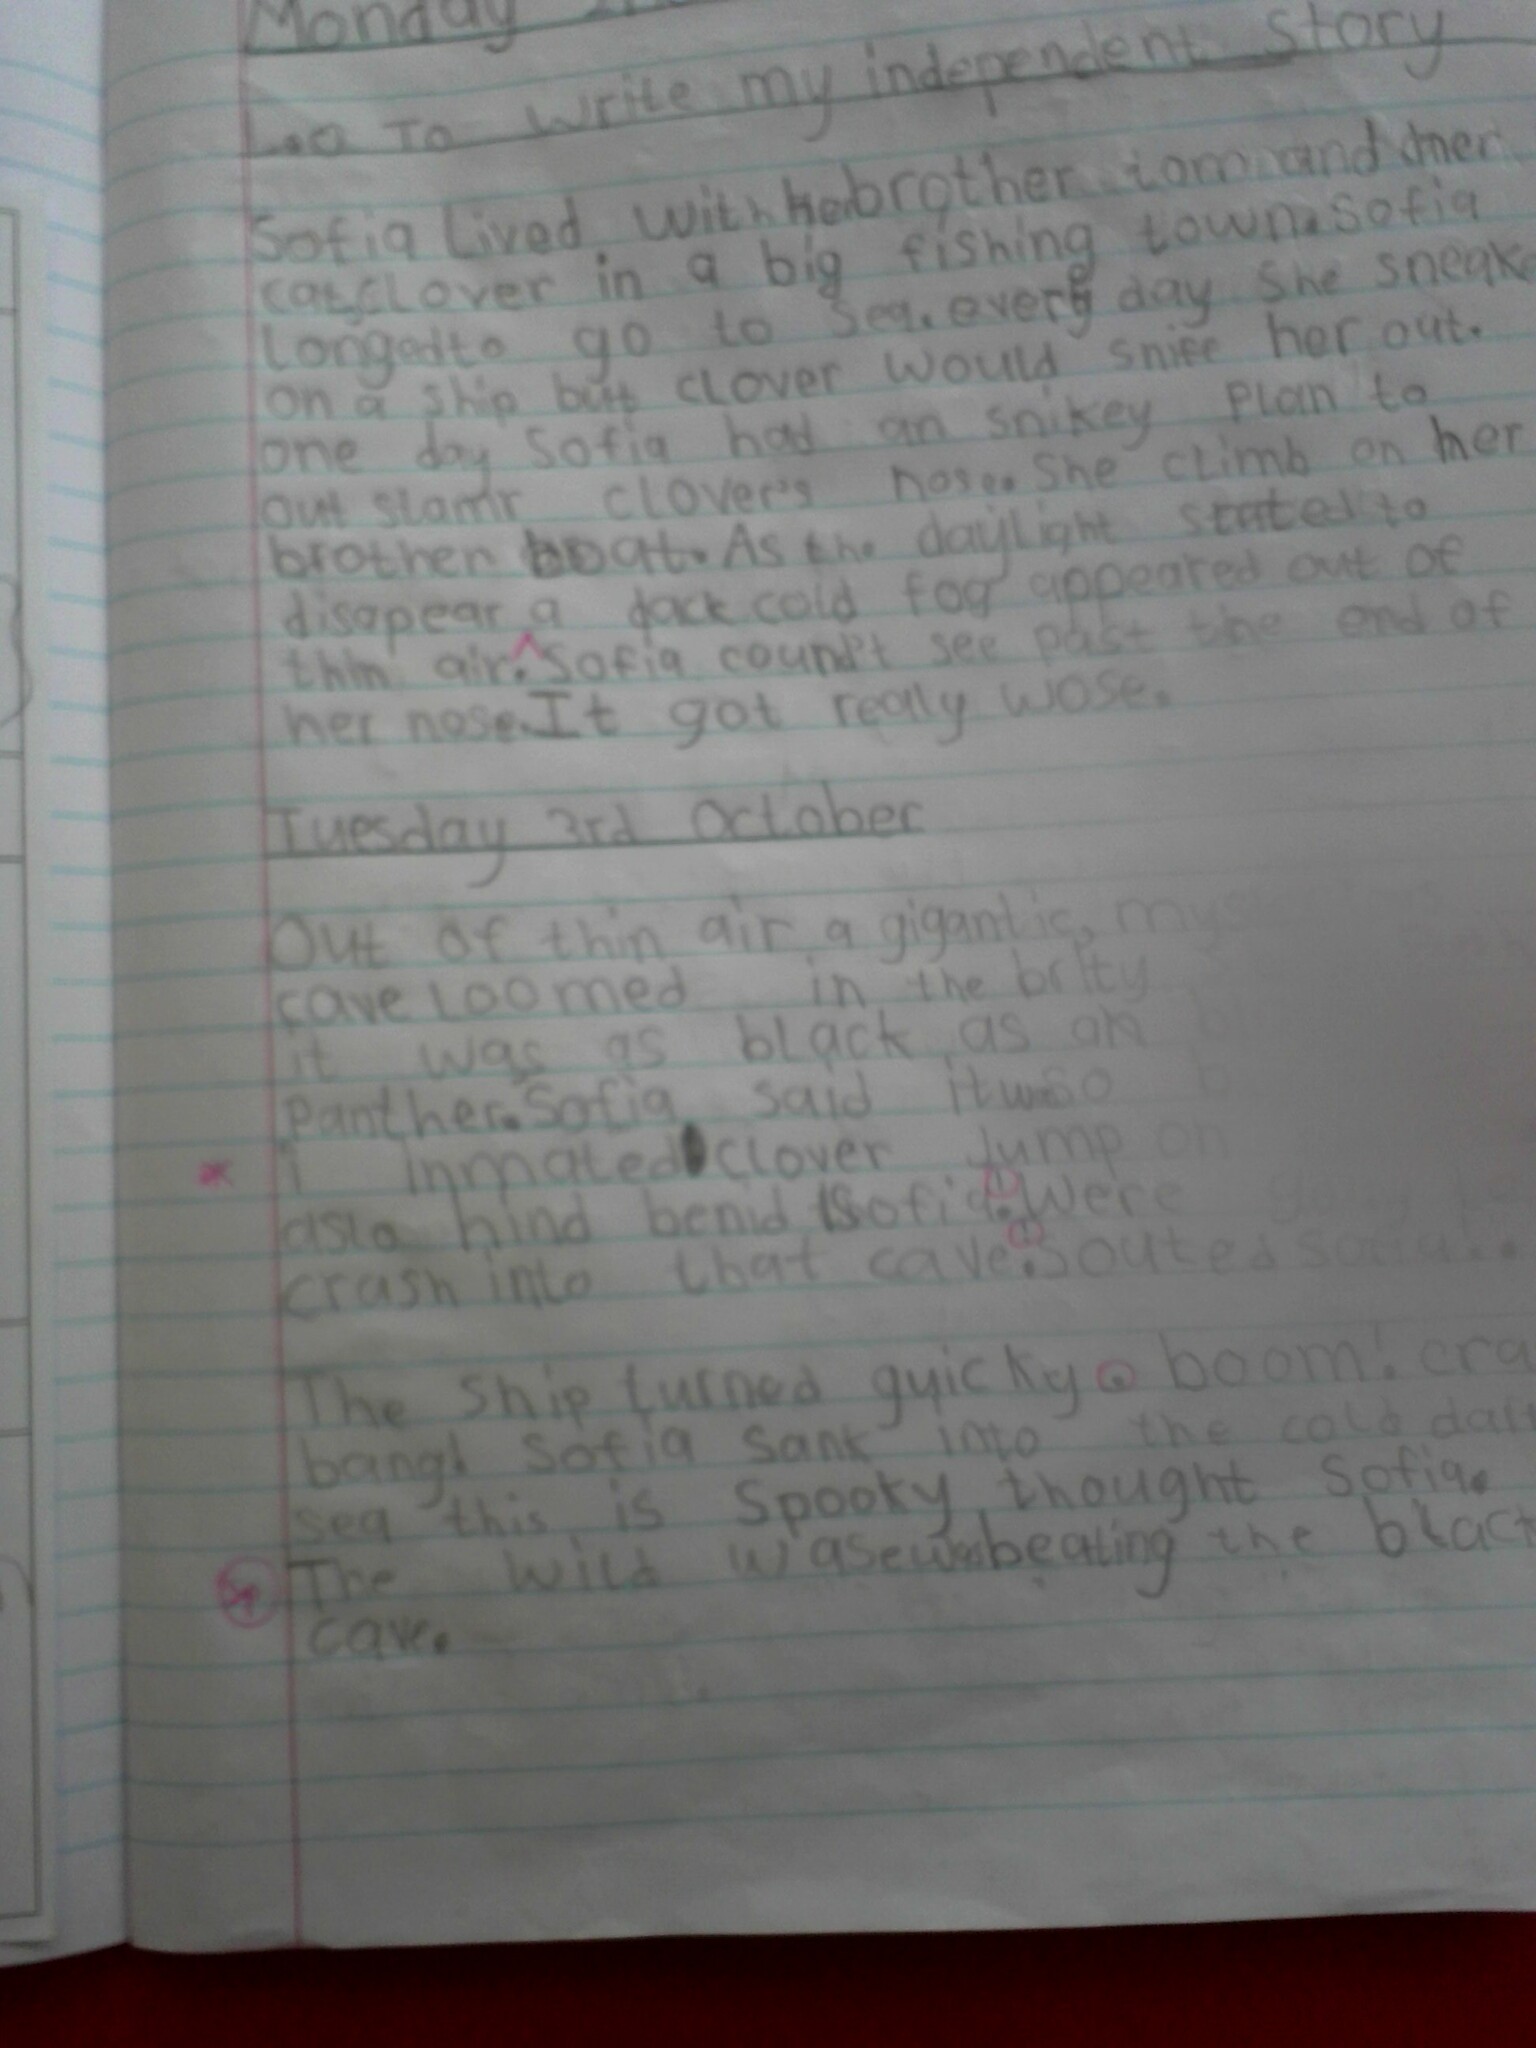 Monday
L.O To write my independent story
Sofia Lived with her brother tom and her
cat clover in a big fishing town. Sofia
Longed to go to sea. every day She sneake
on a ship but clover would sniff her out.
one day Sofia had an snikey plan to
out slamr clover's nose. She climb on her
brother boat. As the daylight stated to
disapear a darck cold fog appeared out of
thin air. Sofia coun't see past the end of
her nose. It got really wose.
Tuesday 3rd October
Out of thin air a gigantic, mys
cave loomed in the brity
it was as black as an
panther. Sofia said it so
i inmated clover Jump on
hind benid Sofia. Were
crash into that cave. Souted
The Ship turned quicky boom! cra
bang! Sofia sank into the cold dar
sea this is Spooky thought Sofia.
The wild was beating the black
cave.